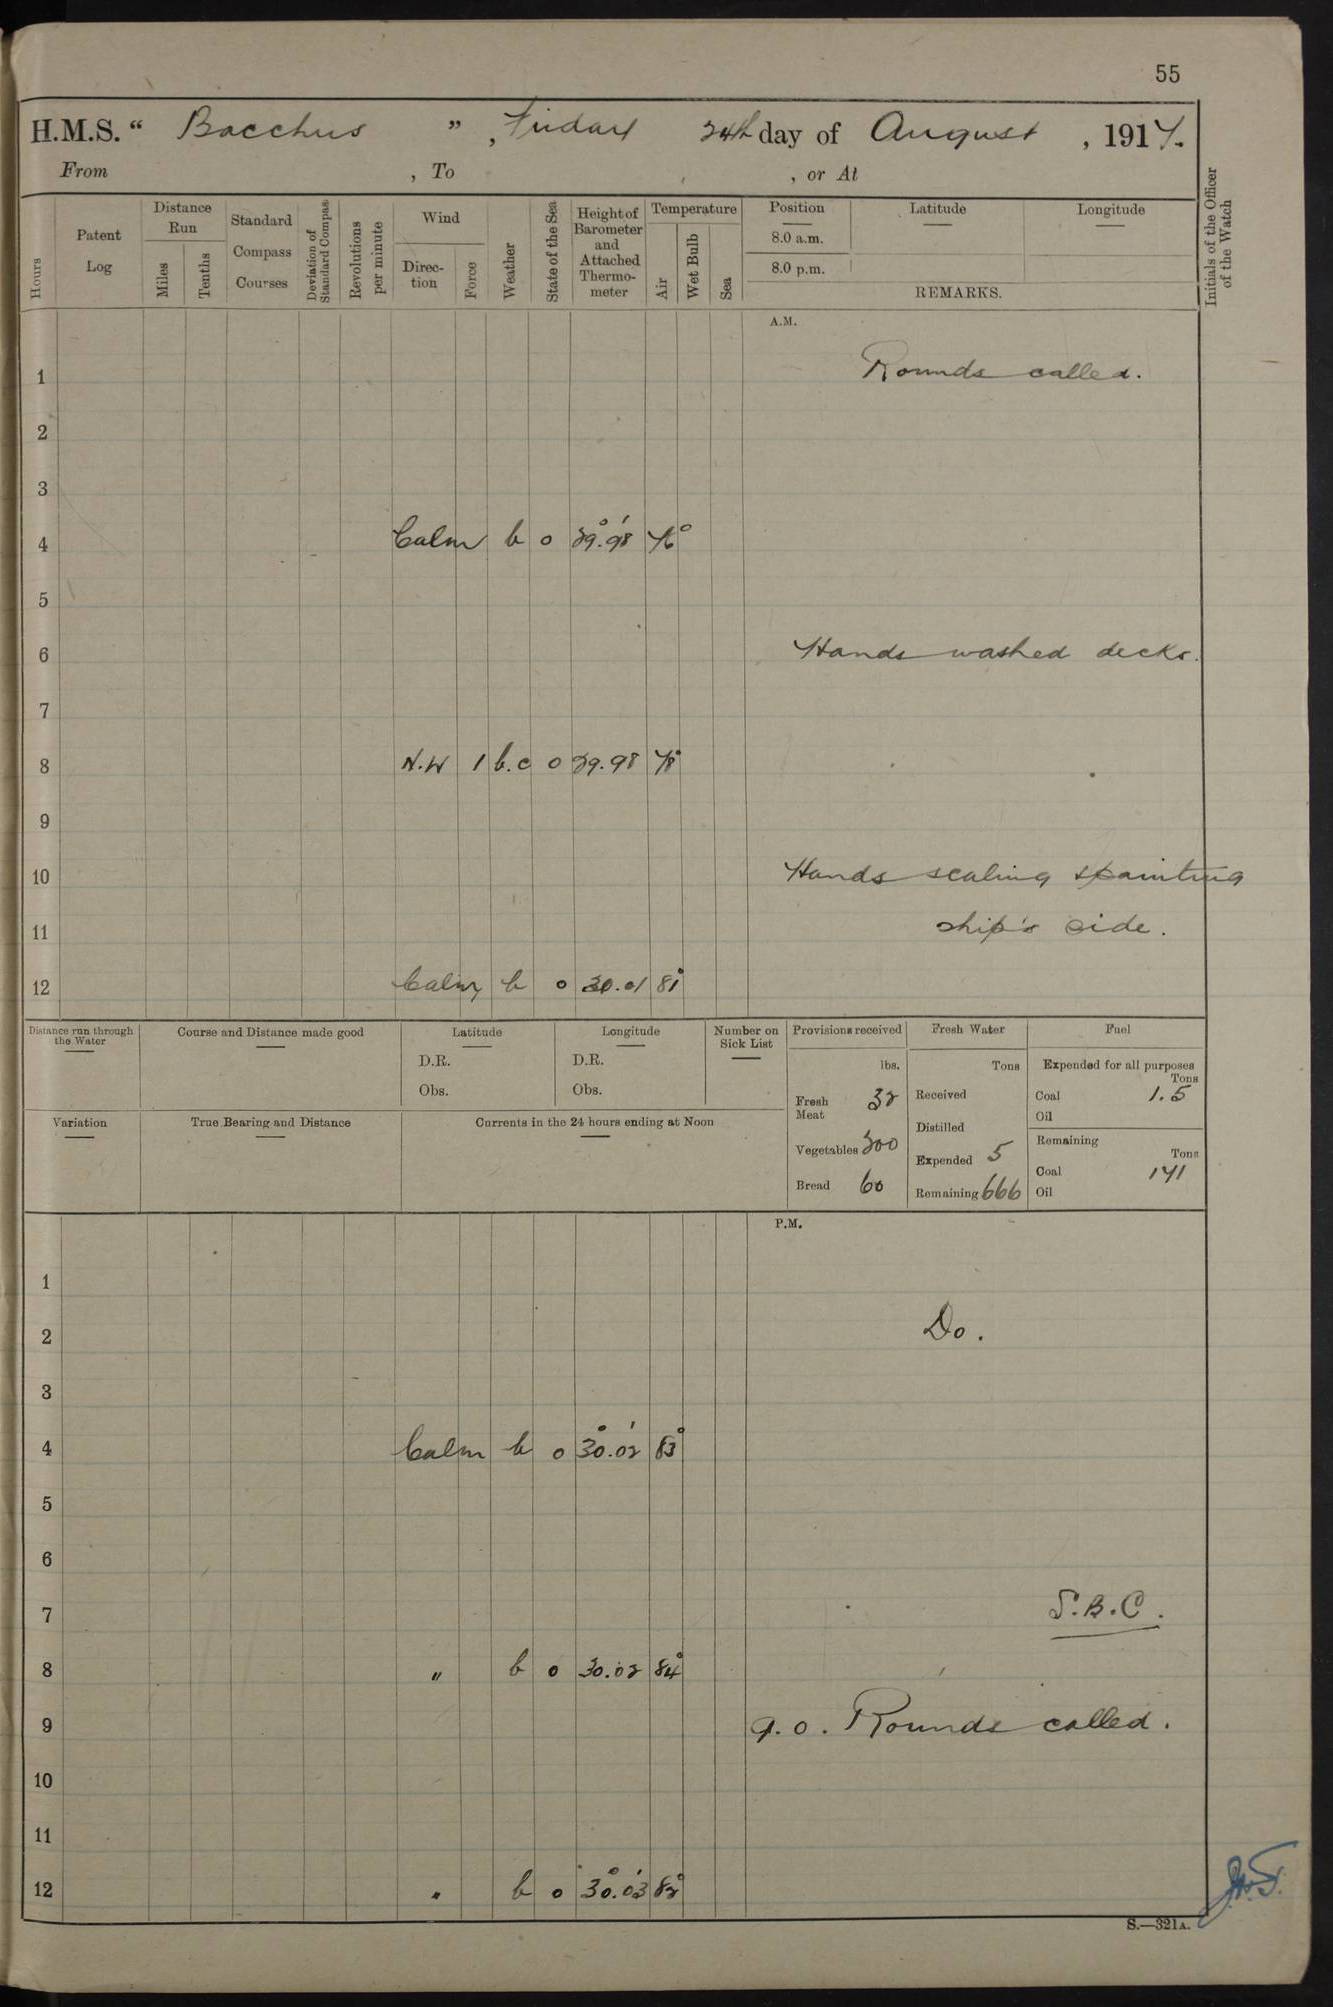 55
H.M.S. “ Bacchus ” , Friday 24th day of August , 1917.
From , To , or At
Hours
Patent Log
Distance Run
Miles
Tenths
Standard Compass Courses
Deviation of Standard Compass
Revolutions per minute
Wind
Direc-tion
Force
Weather
State of the Sea
Height of Barometer and Attached Thermo-meter
Temperature
Air
Wet Bulb
Sea
Position
8.0 a.m.
8.0 p.m.
Latitude
Longitude
REMARKS.
Initials of the Officer of the Watch
A.M.
1 Rounds called.
2
3
4 Calm b 0 29.98 76°
5
6 Hands washed decks.
7
8 N.W 1 b.c 0 29.98 78°
9
10 Hands scaling & painting
11 ship's side.
12 Calm b 0 30.01 81°
Distance run through the Water
Course and Distance made good
Latitude
D.R.
Obs.
Longitude
D.R.
Obs.
Number on Sick List
Provisions received
lbs.
Fresh Meat 32
Vegetables 300
Bread 60
Fresh Water
Tons
Received
Distilled
Expended 5
Remaining 666
Fuel
Expended for all purposes
Tons
Coal 1.5
Oil
Remaining
Tons
Coal 141
Oil
Variation
True Bearing and Distance
Currents in the 24 hours ending at Noon
P.M.
1
2 Do.
3
4 Calm b 0 30.02 83°
5
6
7 S.B.C.
8 " b 0 30.02 84°
9 9.0. Rounds called.
10
11
12 " b 0 30.03 82°
S.—321A.